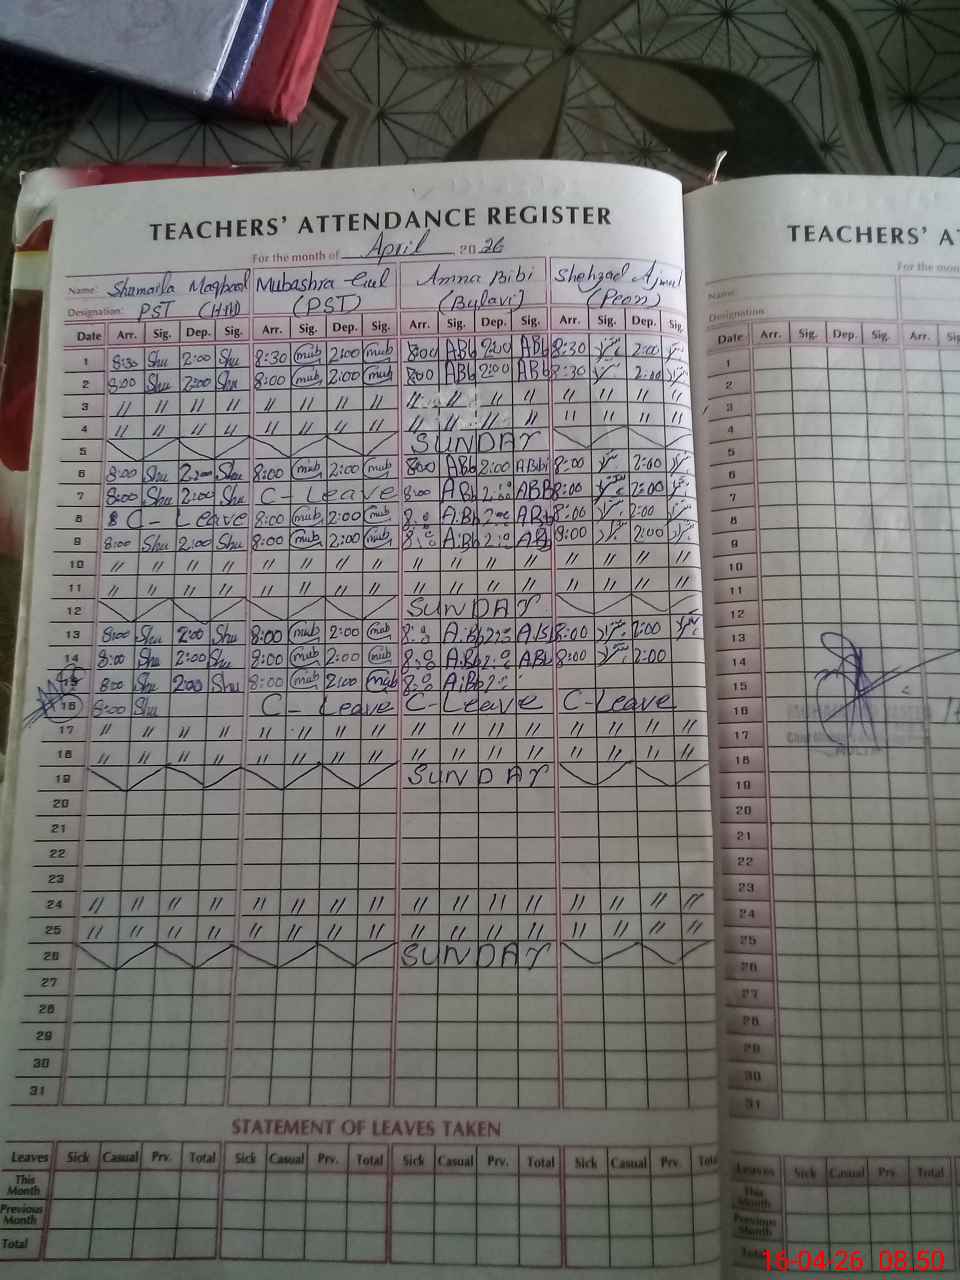 TEACHERS' ATTENDANCE REGISTER
For the month of April, 2026
Name: Shamaila Maqbool Mubashra Gul Amna Bibi Shehzad Ajmal
Designation: PST (HM) (PST) (Bylavi) (Peon)
Date Arr. Sig. Dep. Sig. Arr. Sig. Dep. Sig. Arr. Sig. Dep. Sig. Arr. Sig. Dep. Sig.
1 8:30 Shu 2:00 Shu 8:30 mub 2:00 mub 800 ABb 2:00 ABb 8:30 2:00
2 8:00 Shu 2:00 Shu 8:00 mub 2:00 mub 800 ABb 2:00 ABb 8:30 2:00
3 " " " " " " " " " " " " " " " "
4 " " " " " " " " " " " " " " " "
5 SUNDAY
6 8:00 Shu 2:00 Shu 8:00 mub 2:00 mub 8:00 ABb 2:00 ABbi 8:00 2:00
7 8:00 Shu 2:00 Shu C-Leave 8:00 ABb 2:00 ABB 8:00 2:00
8 C-Leave 8:00 mub 2:00 mub 8:00 A.Bb 2:00 ABb 8:00 2:00
9 8:00 Shu 2:00 Shu 8:00 mub 2:00 mub 8:00 A:Bb 2:00 8:00 2:00
10 " " " " " " " " " " " " " " " "
11 " " " " " " " " " " " " " " " "
12 SUNDAY
13 8:00 Shu 2:00 Shu 8:00 mub 2:00 mub 8:00 A.Bb 2:00 8:00 2:00
14 8:00 Shu 2:00 Shu 8:00 mub 2:00 mub 8:00 A.Bb 2:00 ABb 8:00 2:00
15 8:00 Shu 2:00 Shu 8:00 mub 2:00 mub 8:00 A:Bb 2:
16 8:00 Shu C-Leave C-Leave C-Leave
17 " " " " " " " " " " " " " " " "
18 " " " " " " " " " " " " " " " "
19 SUNDAY
20
21
22
23
24 " " " " " " " " " " " " " " " "
25 " " " " " " " " " " " " " " " "
26 SUNDAY
27
28
29
30
31
STATEMENT OF LEAVES TAKEN
Leaves Sick Casual Prv. Total Sick Casual Prv. Total Sick Casual Prv. Total Sick Casual Prv. Total
This Month
Previous Month
Total
TEACHERS' AT
For the mon
Name:
Designation
Date Arr. Sig. Dep. Sig. Arr. Sig.
1
2
3
4
5
6
7
8
9
10
11
12
13
14
15
16
17
18
19
20
21
22
23
24
25
26
27
28
29
30
31
Leaves Sick Casual Prv. Total Sick Casual
This Month
Previous Month
Total
16-04-26 08.50